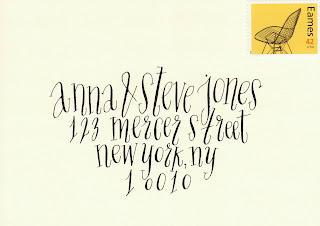 anna & steve jones
123 mercer street
new york, ny
10010
Eames
42